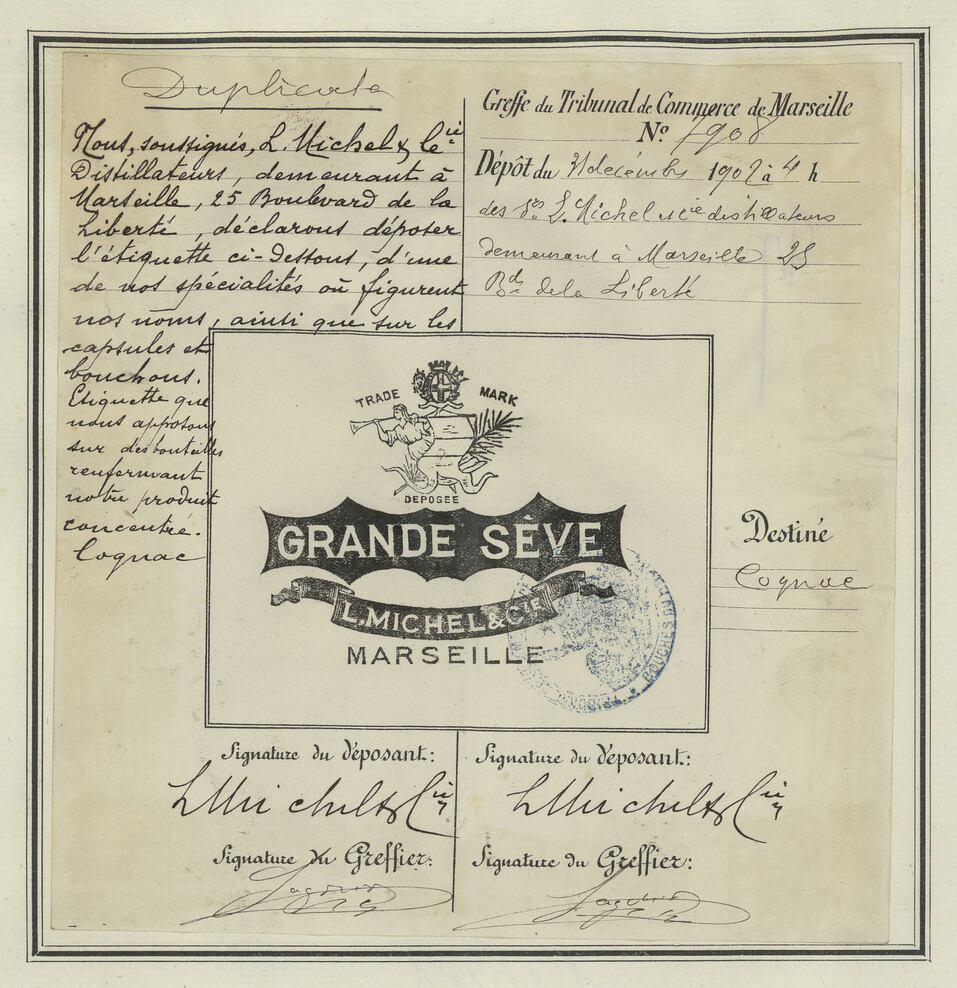 Duplicata
Nous, soussignés, L. Michel & Cie
Distillateurs, demeurant à
Marseille, 25 Boulevard de la
Liberté, déclarons déposer
l'étiquette ci-dessous, d'une
de nos spécialités où figurent
nos noms, ainsi que sur les
capsules et
bouchons.
Etiquette que
nous apposons
sur des bouteilles
renfermant
notre produit
concentré.
Cognac
Greffe du Tribunal de Commerce de Marseille
No. 1908
Dépôt du 31 décembre 1902 à 4 h
des Srs L. Michel et Cie distillateurs
demeurant à Marseille 25
Bd de la Liberté
TRADE MARK
DEPOSÉE
GRANDE SÈVE
L. MICHEL & CIE
MARSEILLE
Destiné
Cognac
Signature du déposant:
L Michel & Cie
Signature du Greffier:
Signature du déposant:
L Michel & Cie
Signature du Greffier: